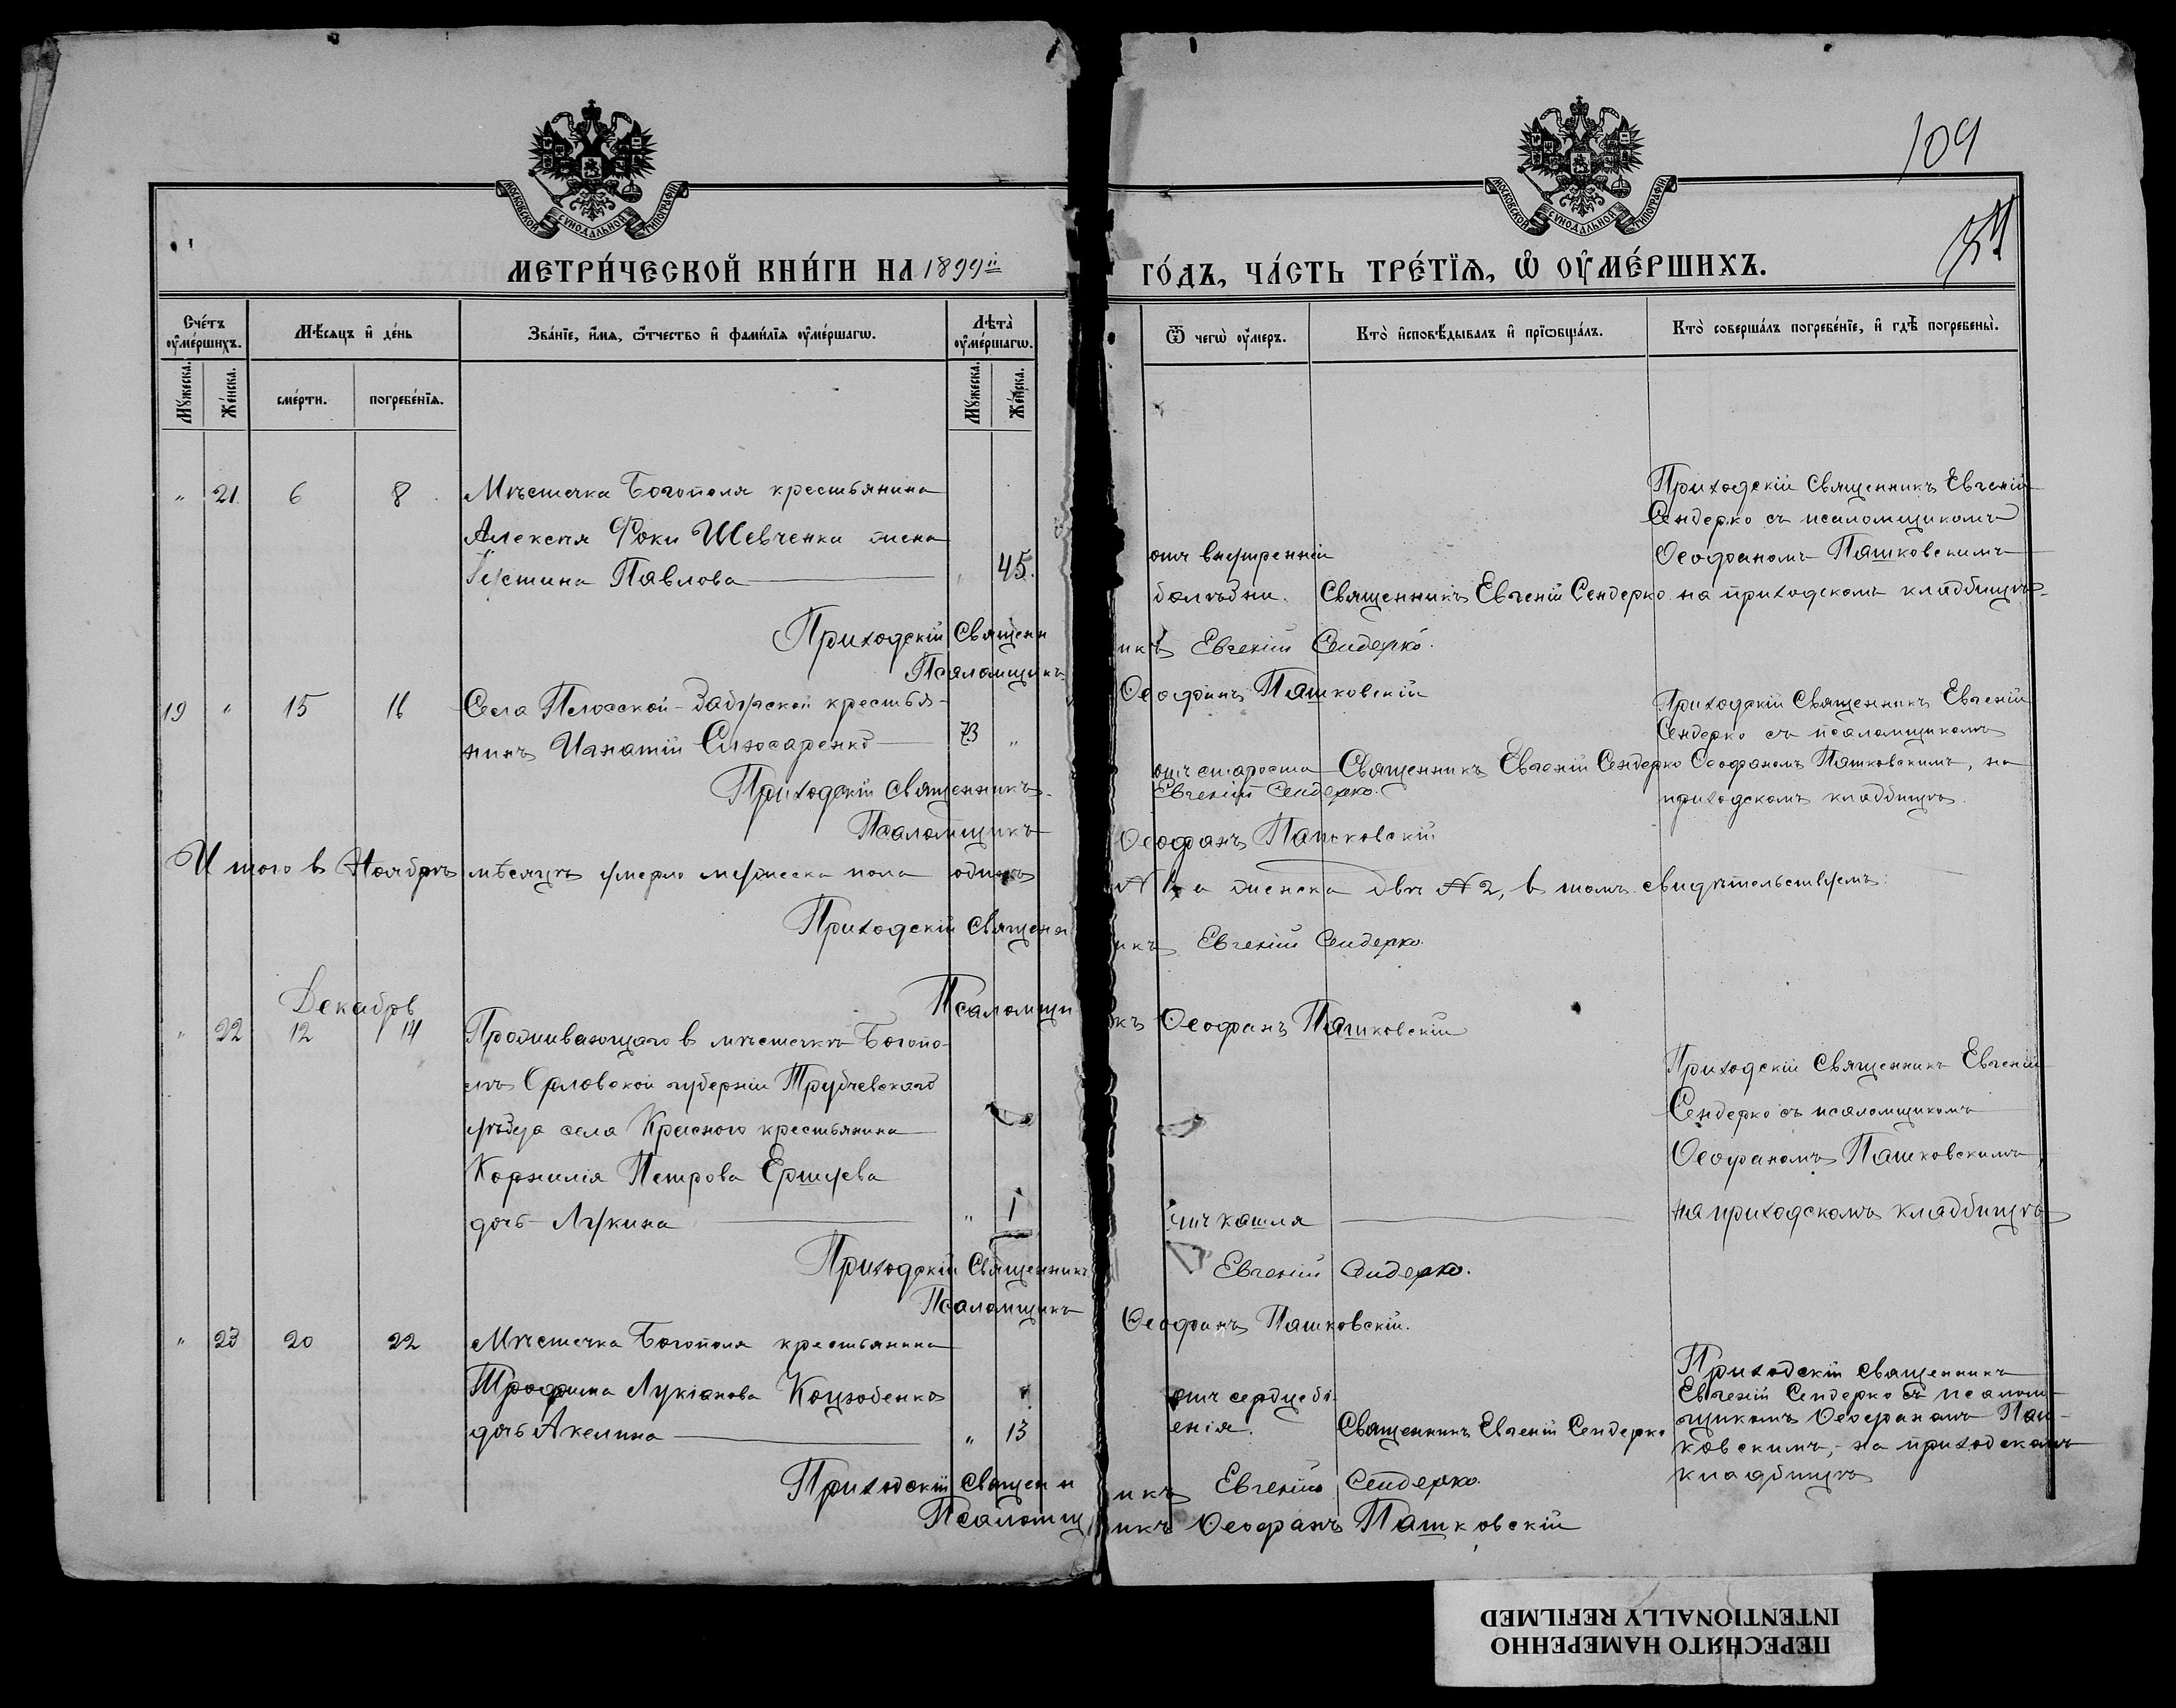 109
МОСКОВСКОЙ СѴНОДАЛЬНОЙ ТИПОГРАФІИ
МОСКОВСКОЙ СѴНОДАЛЬНОЙ ТИПОГРАФІИ
МЕТРИ́ЧЕСКОЙ КНИ́ГИ НА 1899й ГО́ДЪ, ЧА́СТЬ ТРЕ́ТЇѦ, Ѡ ОУ҆МЕ́РШИХЪ.
Сче́тъ оу҆ме́ршихъ.
Мѣ́сяцъ и҆ де́нь
Зва́нїе, и҆́мѧ, ѻ҆́тчество и҆ фами́лїѧ оу҆ме́ршагѡ.
Лѣта̀ оу҆ме́ршагѡ.
Ѿ чегѡ̀ оу҆́меръ.
Кто̀ и҆сповѣ́дывалъ и҆ прїѡбща́лъ.
Кто̀ соверша́лъ погребе́нїе, и҆ гдѣ̀ погребены̀.
Мꙋ́жеска. Же́нска. сме́рти. погребе́нїѧ. Мꙋ́жеска. Же́нска.
" 21. 6 8. Мѣстечка Богополя крестьянина
Алексѣя Фоки Шевченки жена
Іустина Павлова " 45.
отъ внутренній
болѣзни. Священникъ Евгеній Сендерко
Приходскій Священникъ Евгеній
Сендерко съ псаломщикомъ
Ѳеофаномъ Пашковскимъ
на приходскомъ кладбищѣ.
Приходскій Священникъ Евгеній Сендерко.
Псаломщикъ Ѳеофанъ Пашковскій
19 " 15 16 Села Песоцкой-Забужской крестья-
нинъ Игнатій Слюсаренко 73 "
отъ старости Священникъ Евгеній Сендерко
Приходскій Священникъ Евгеній
Сендерко съ псаломщикомъ
Ѳеофаномъ Пашковскимъ, на
приходскомъ кладбищѣ.
Приходскій Священникъ Евгеній Сендерко.
Псаломщикъ Ѳеофанъ Пашковскій
Итого въ Ноябрѣ мѣсяцѣ умерло мужеска пола одинъ № 1, а женска двѣ № 2, въ томъ свидѣтельствуемъ:
Приходскій Священникъ Евгеній Сендерко.
Псаломщикъ Ѳеофанъ Пашковскій
Декабрь
" 22 12 14 Проживающаго въ мѣстечкѣ Богопо-
лѣ Орловской губерніи Трубчевскаго
уѣзда села Красного крестьянина
Корнилія Петрова Ершуева
дочь Лукина " 1
отъ кашля
Приходскій Священникъ Евгеній
Сендерко съ псаломщикомъ
Ѳеофаномъ Пашковскимъ
на приходскомъ кладбищѣ
Приходскій Священникъ Евгеній Сендерко.
Псаломщикъ Ѳеофанъ Пашковскій.
" 23 20 22 Мѣстечка Богополя крестьянина
Трофима Лукіанова Коцюбенко
дочь Акелина " 13
отъ сердцебі-
енія. Священникъ Евгеній Сендерко
Приходскій Священникъ
Евгеній Сендерко съ псалом-
щикомъ Ѳеофаномъ Паш-
ковскимъ, на приходскомъ
кладбищѣ
Приходскій Священникъ Евгеній Сендерко.
Псаломщикъ Ѳеофанъ Пашковскій
ПЕРЕСНЯТО НАМЕРЕННО
INTENTIONALLY REFILMED